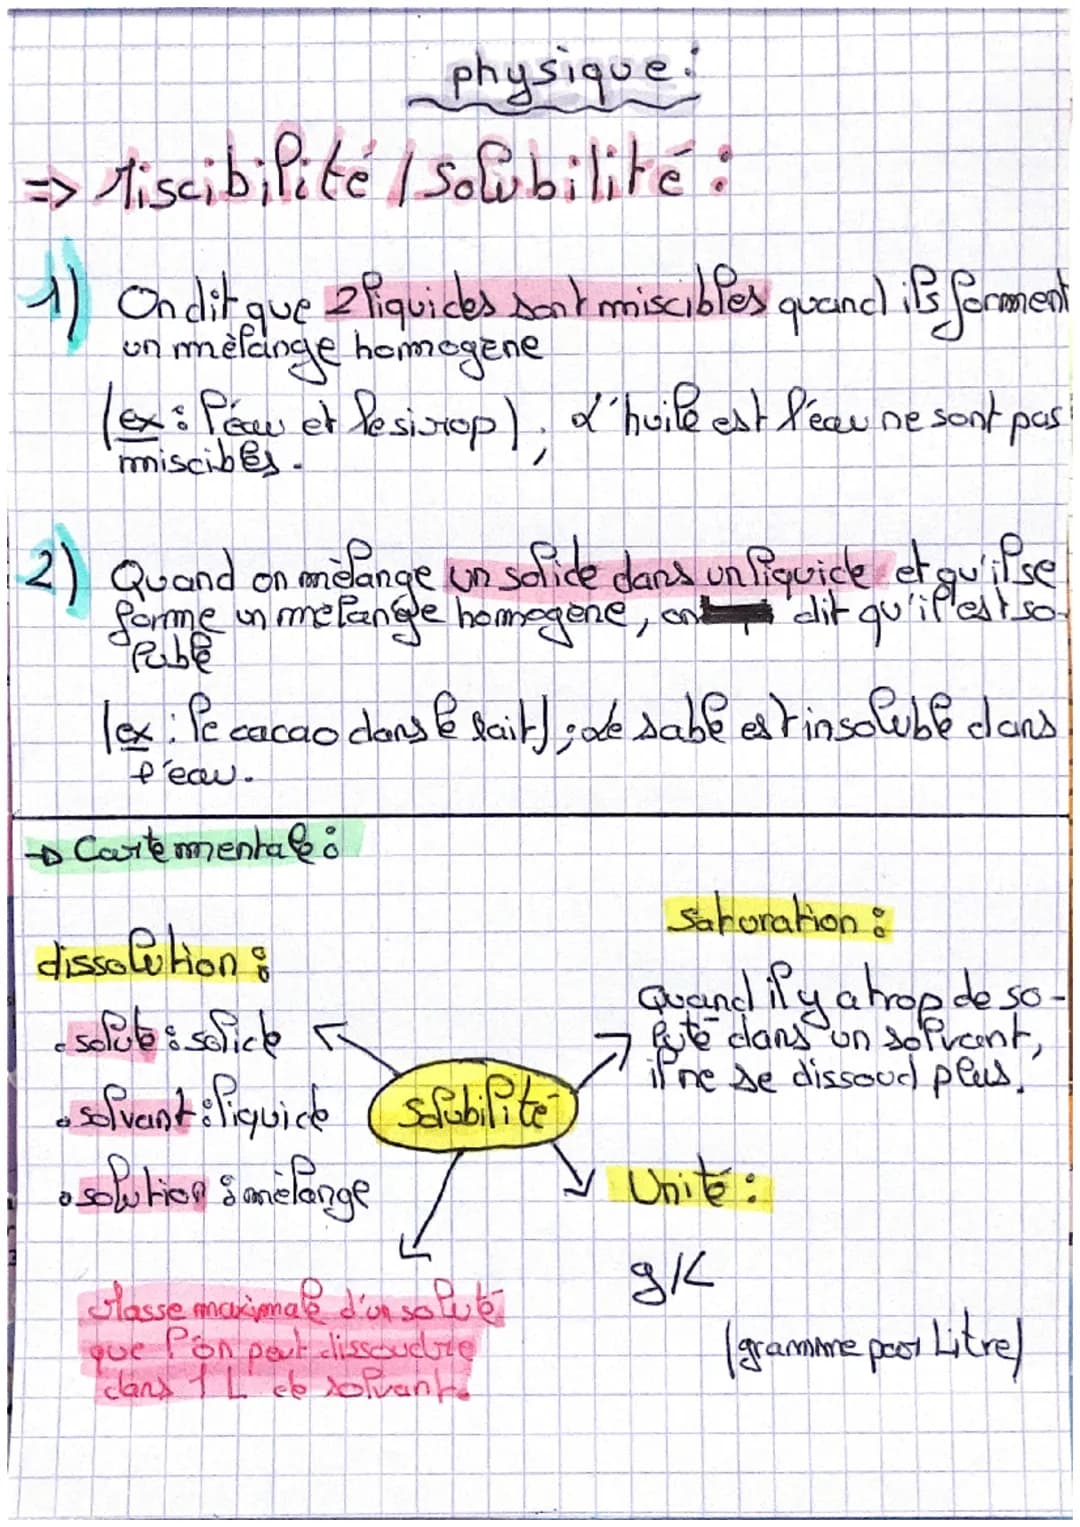 physique :
=> Miscibilité / Solubilité :
1) On dit que 2 liquides sont miscibles quand ils forment
un mélange homogène
(ex : l'eau et le sirop) ; L'huile est l'eau ne sont pas
miscibles.
2) Quand on mélange un solide dans un liquide et qu'il se
forme un mélange homogène, on dit qu'il est so-
luble
(ex : le cacao dans le lait) ; le sable est insoluble dans
l'eau.
→ Carte mentale :
dissolution :
• soluté : solide
• solvant : liquide
• solution : mélange
saturation :
Quand il y a trop de so-
luté dans un solvant,
il ne se dissoud plus.
Solubilité
Unité :
g/L
(gramme par Litre)
Masse maximale d'un soluté
que l'on peut dissoudre
dans 1 L de solvant.